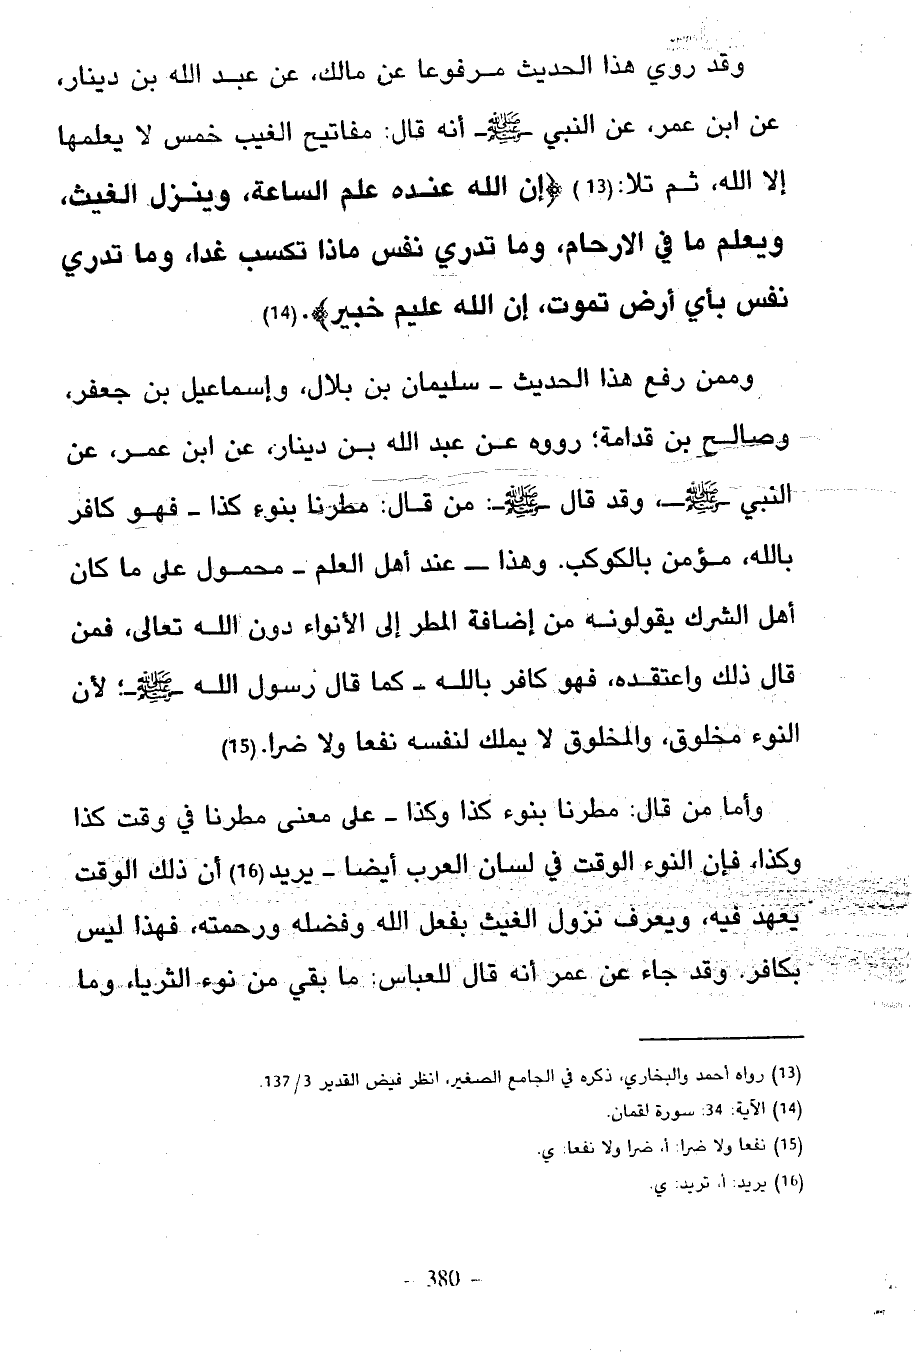 وقد روي هذا الحديث مرفوعا عن مالك، عن عبد الله بن دينار،
عن ابن عمر، عن النبي ـ ﷺ ـ أنه قال: مفاتيح الغيب خمس لا يعلمها
إلا الله، ثم تلا: (13) ﴿إن الله عنده علم الساعة، وينزل الغيث،
ويعلم ما في الارحام، وما تدري نفس ماذا تكسب غدا، وما تدري
نفس بأي أرض تموت، إن الله عليم خبير﴾. (14)
وممن رفع هذا الحديث ـ سليمان بن بلال، وإسماعيل بن جعفر،
وصالح بن قدامة؛ رووه عن عبد الله بن دينار، عن ابن عمر، عن
النبي ـ ﷺ ـ، وقد قال ـ ﷺ ـ: من قال: مطرنا بنوء كذا ـ فهو كافر
بالله، مؤمن بالكوكب. وهذا ـ عند أهل العلم ـ محمول على ما كان
أهل الشرك يقولونه من إضافة المطر إلى الأنواء دون الله تعالى، فمن
قال ذلك واعتقده، فهو كافر بالله ـ كما قال رسول الله ـ ﷺ ـ؛ لأن
النوء مخلوق، والمخلوق لا يملك لنفسه نفعا ولا ضرا. (15)
وأما من قال: مطرنا بنوء كذا وكذا ـ على معنى مطرنا في وقت كذا
وكذا، فإن النوء الوقت في لسان العرب أيضا ـ يريد (16) أن ذلك الوقت
يعهد فيه، ويعرف نزول الغيث بفعل الله وفضله ورحمته، فهذا ليس
بكافر. وقد جاء عن عمر أنه قال للعباس: ما بقي من نوء الثريا، وما
(13) رواه أحمد والبخاري، ذكره في الجامع الصغير، انظر فيض القدير 3/137.
(14) الآية: 34: سورة لقمان.
(15) نفعا ولا ضرا: أ، ضرا ولا نفعا: ي.
(16) يريد: أ، تريد: ي.
- 380 -